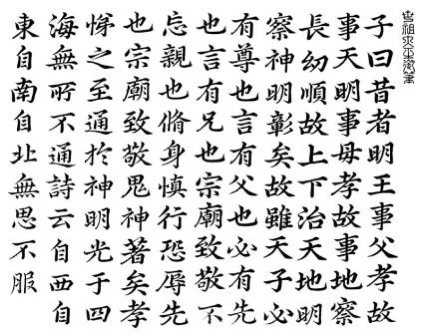 子曰昔者明王事父孝故
事天明事母孝故事地察
長幼順故上下治天地明
察神明彰矣故雖天子必
有尊也言有父也必有先
也言有兄也宗廟致敬不
忘親也脩身慎行恐辱先
也宗廟致敬鬼神著矣孝
悌之至通於神明光于四
海無所不通詩云自西自
東自南自北無思不服